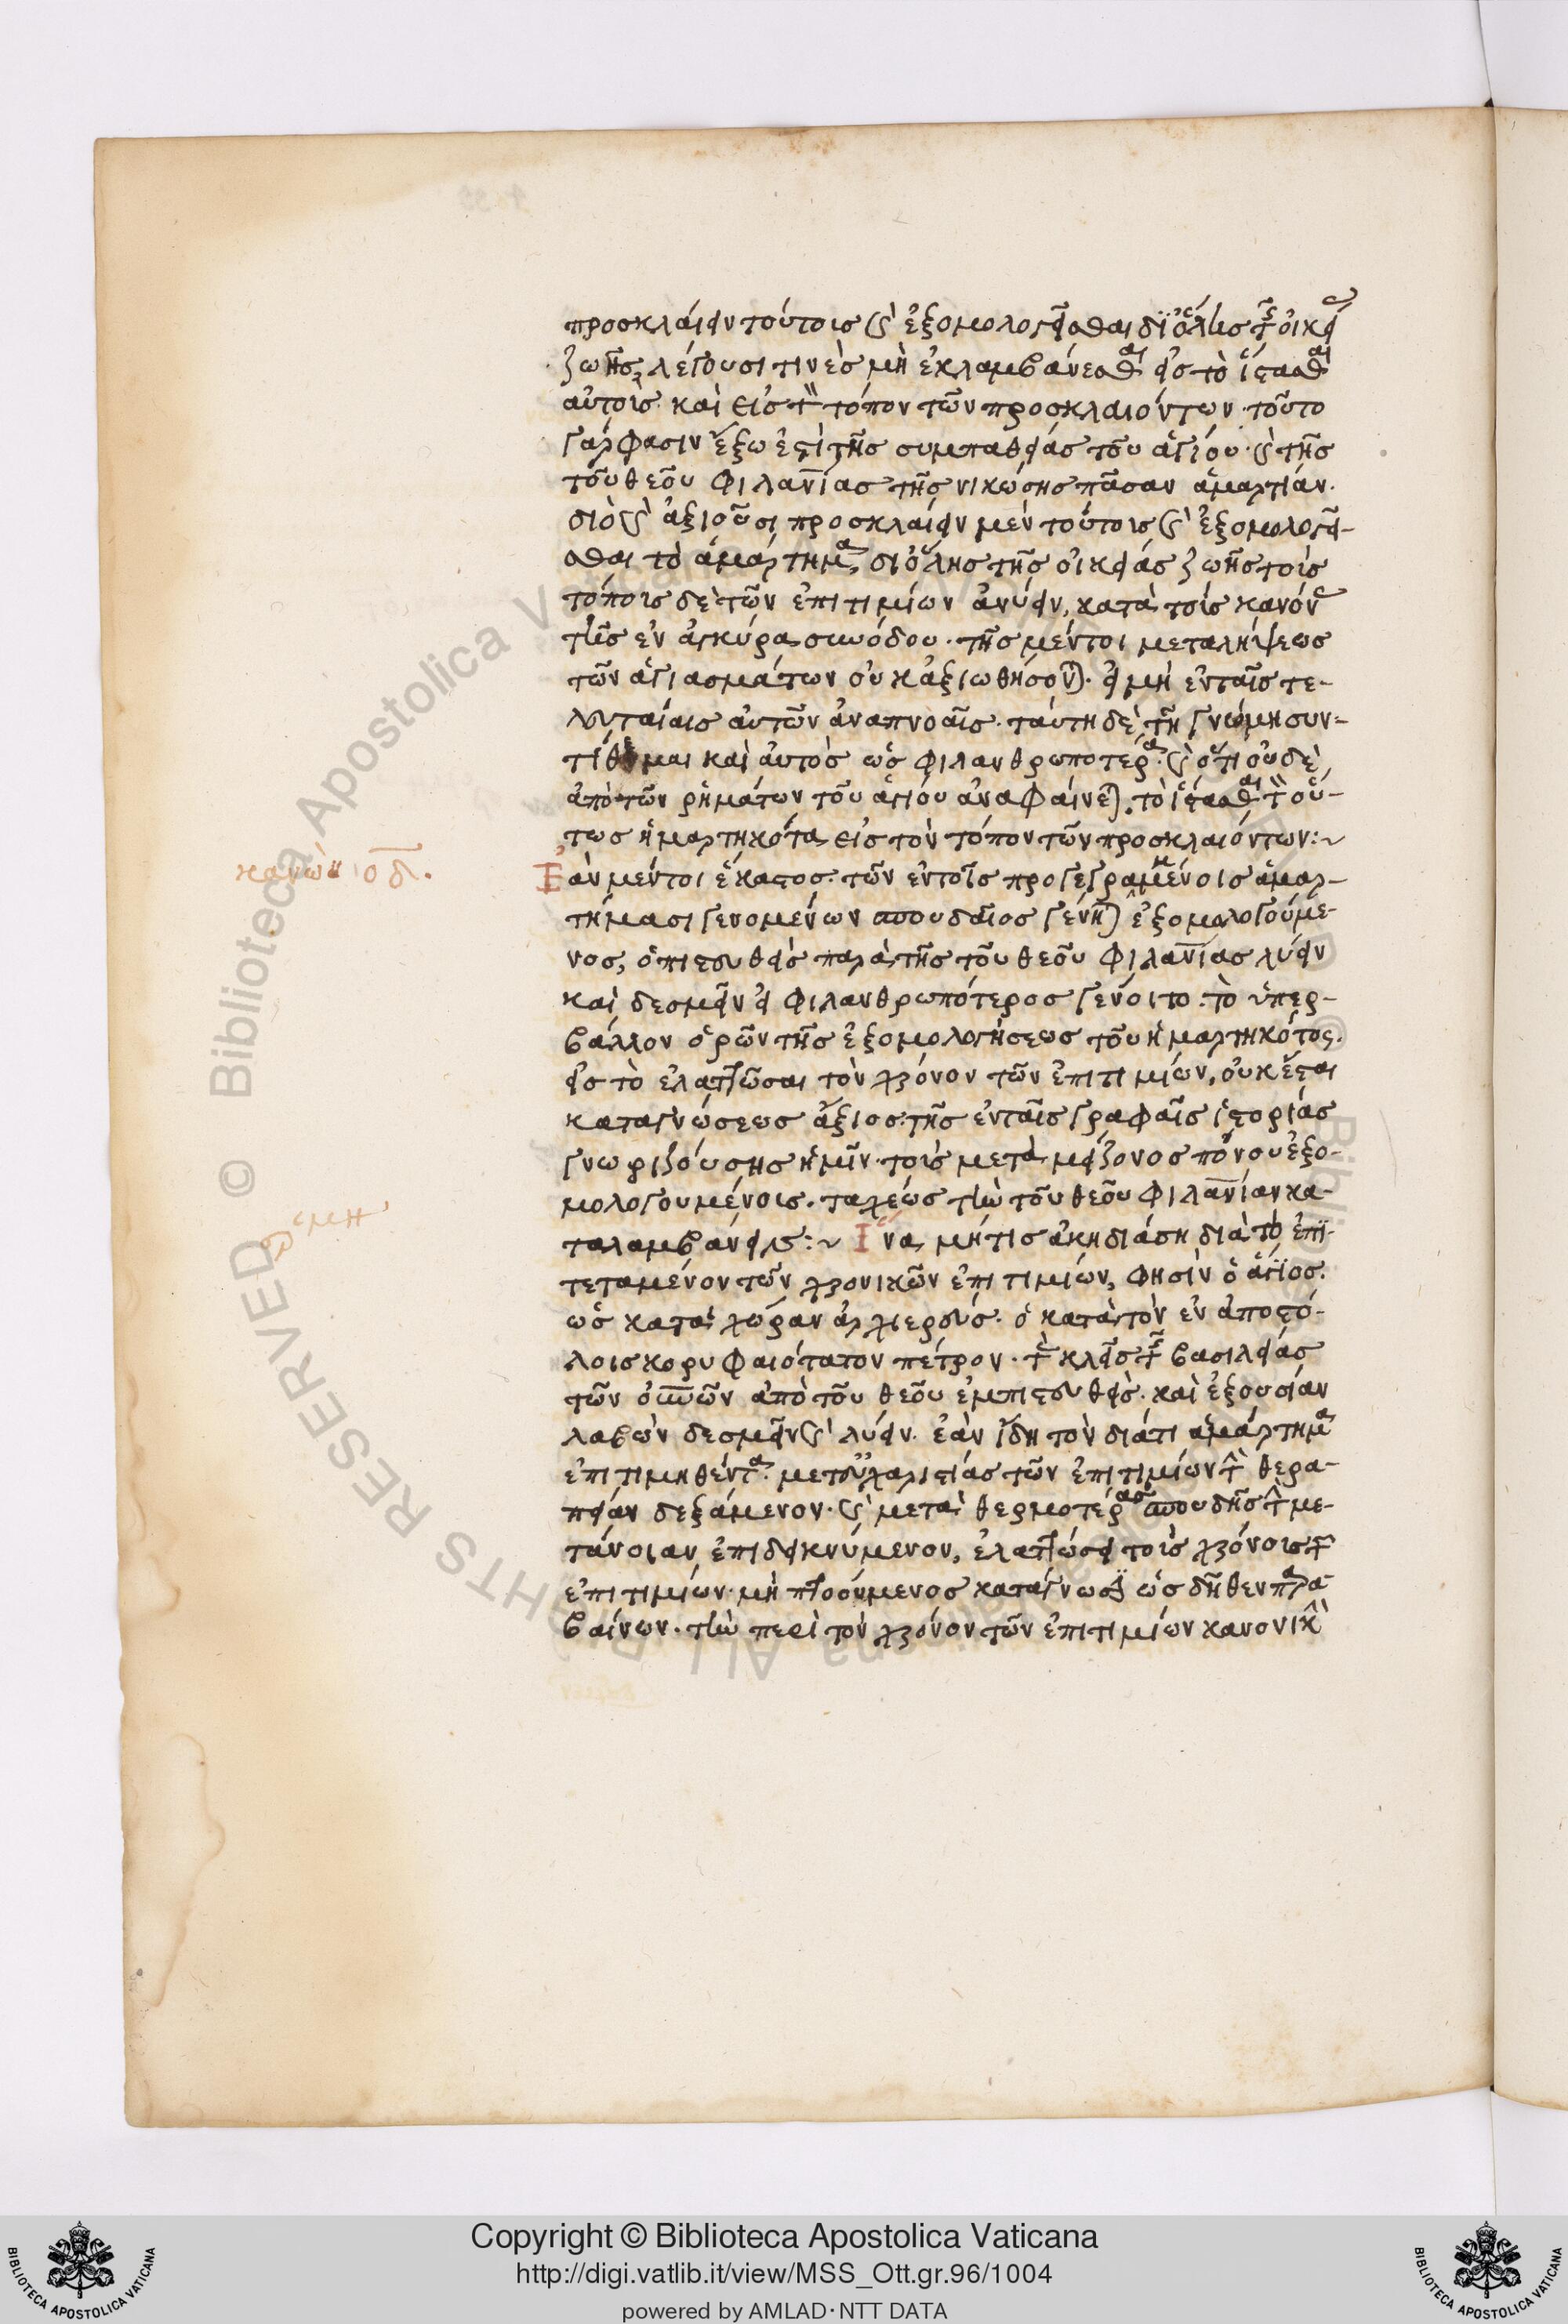 προσκλαίειν τούτοις καὶ ἐξομολογεῖσθαι δι' ὅλης τῆς οἰκείας
ζωῆς, λέγουσι τινὲς μὴ ἐκλαμβάνεσθαι εἰς τὸ ἵστασθαι
αὐτοὶς καὶ εἰς τὸν τόπον τῶν προσκλαιόντων· τοῦτο
γάρ φασιν ἔξω ἐστὶ τῆς συμπαθείας του ἁγίου· καὶ τῆς
τοῦ θεοῦ φιλανίας τῆς νικώσης πᾶσαν ἁμαρτίαν.
διὸ καὶ ἀξιοῦσι προσκλαίειν μὲν τούτοις καὶ ἐξομολογεῖ-
σθαι τὸ ἁμάρτημα, δι' ὅλης τῆς οἰκείας ζωῆς τοὶς
τόποις δὲ τῶν ἐπιτιμίων ἀνύειν, κατὰ τοὶς κανόνας
τῆς ἐν ἀγκύρα συνόδου· τῆς μέντοι μεταλήψεως
τῶν ἁγιασμάτων οὐκ ἀξιωθήσονται· εἰ μὴ ἐν ταῖς τε-
λευταίαις αὐτῶν ἀναπνοαῖς· ταύτη δὲ τῇ γνώμη συν-
τίθεμαι καὶ αὐτὸς ὡς φιλανθρωποτέρα· καὶ ὅτι οὐδὲ
ἀπὸ τῶν ρημάτων τοῦ ἁγίου ἀναφαίνεται, τὸ ἵστασθαι τὸν οὕ-
τως ἡμαρτηκότα εἰς τὸν τόπον τῶν προσκλαιόντων:~
κανὼν οδ.
Ἐὰν μέντοι ἕκαστος τῶν ἐν τοῖς προγεγραμμένοις ἁμαρ-
τήμασι γενομένων σπουδαῖος γένηται ἐξομολογούμε-
νος, ὁ πιστευθεὶς παρὰ τῆς τοῦ θεοῦ φιλανίας λύειν
καὶ δεσμεῖν εἰ φιλανθρωπότερος γένοιτο· τὸ ὑπερ-
βάλλον ὁρῶν τῆς ἐξομολογήσεως τοῦ ἡμαρτηκότος.
εἰς τὸ ἐλαττῶσαι τὸν χρόνον τῶν ἐπιτιμίων, οὐκ ἔσται
καταγνώσεως ἄξιος· τῆς ἐν ταῖς γραφαῖς ἱστορίας
γνωριζούσης ἡμῖν· τοὶς μετὰ μείζονος πόνου ἐξο-
μολογουμένοις· ταχέως τὴν τοῦ θεοῦ φιλανίαν κα-
ταλαμβάνειν:~ Ἵνα μήτις ἀκηδιάση διὰ τὸ ἐπι-
τεταμένον τῶν χρονικῶν ἐπιτιμίων, φησὶν ὁ ἅγιος.
ὡς κατὰ χώραν ἀρχιερεύς· ὁ κατὰ τὸν ἐν ἀποστό-
λοις κορυφαιότατον πέτρον· τὰς κλεῖς τῆς βασιλείας
τῶν οὐνῶν ἀπὸ τοῦ θεοῦ ἐμπιστευθεὶς· καὶ ἐξουσίαν
λαβὼν δεσμεῖν καὶ λύειν· ἐὰν ἴδη τὸν διάτι ἁμάρτημα
ἐπιτιμηθέντα· μετ' εὐχαριστίας τῶν ἐπιτιμίων τὴν θερα-
πείαν δεξάμενον· καὶ μετὰ θερμοτέρας σπουδῆς τὴν με-
τάνοιαν ἐπιδεικνύμενον, ἐλαττώσει τοὶς χρόνοις τῶν
ἐπιτιμίων· μὴ πτοούμενος κατάγνωσιν ὡς δῆθεν παρα-
βαίνων· τὴν περὶ τὸν χρόνον τῶν ἐπιτιμίων κανονικὴν